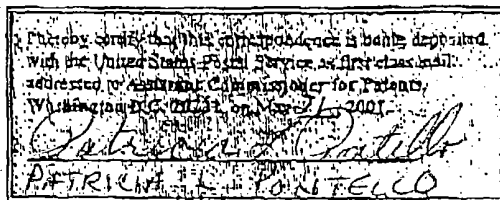 I hereby certify that this correspondence is being deposited
with the United States Postal Service as first class mail
addressed to Assistant Commissioner for Patents,
Washington D.C. 20231, on March 2001.
Patricia L Pontello
PATRICIA L PONTELLO